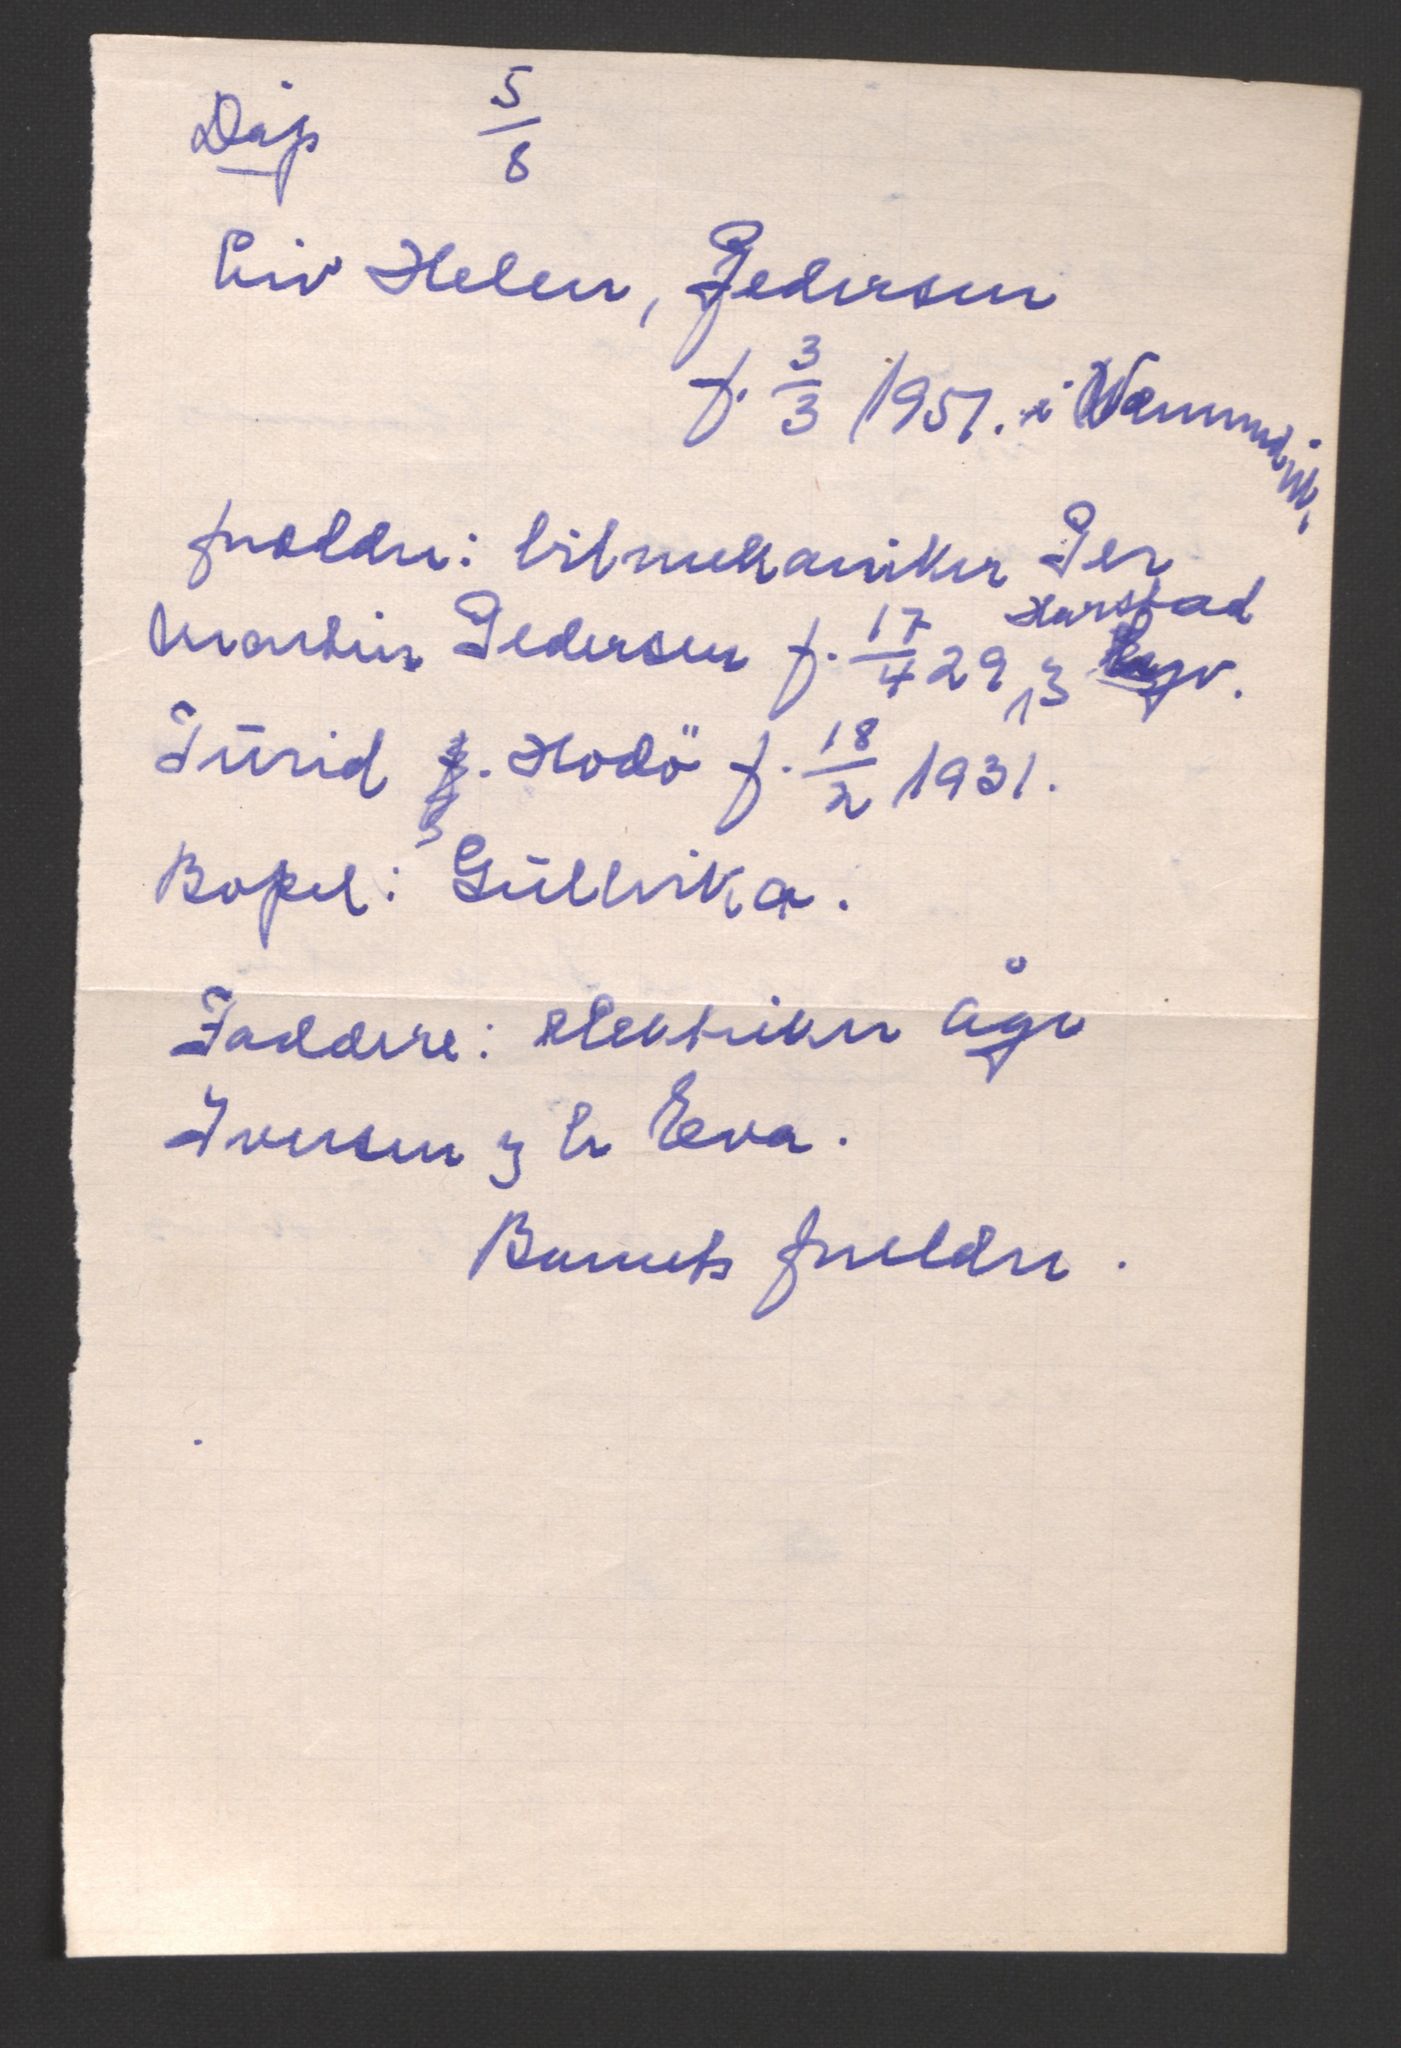 Dåp 5/8
Liv Helen, Pedersen
f. 3/3 1951. i
foreldre: bilmekaniker Per
Harstad
Martin Pedersen f. 17/4 29, og
Turid f. Hodö f. 18/2 1931.
Bopel: Gullvika.
Faddere: elektriker Åge
Iversen og h Eva.
Barnets foreldre.